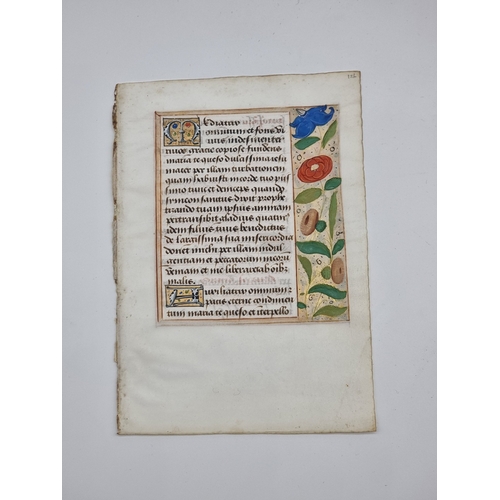 Mediatrix
omnium et fons vi
uus indesinenter
gracie copiose fundens
maria te queso dulcissima
mater per illam turbationem
quam habuisti in corde tuo piis
simo tunc et deinceps quando
symeon sanctus dixit prophe
tizando tuam ipsius animam
pertransibit gladius quatin
idem filius tuus benedictus
de largissima sua misericordia
donet michi per illam indul
gentiam et peccatorum meorū
veniam et me liberare ab oib
malis.
Auxiliatrix omnium
patris eterne condimen
tum maria te queso et interpello